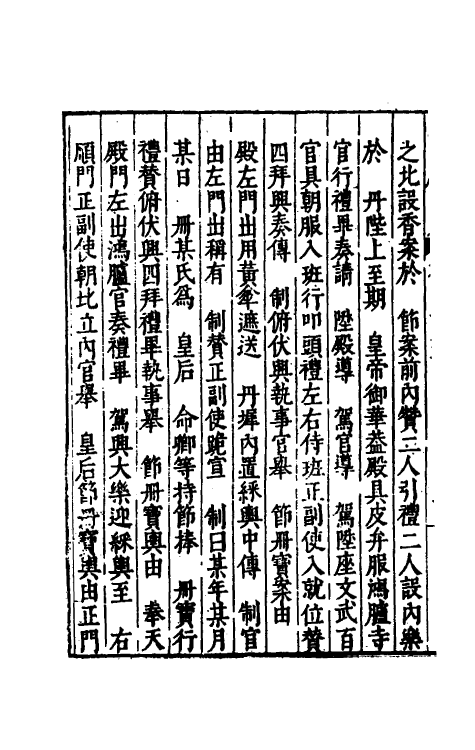 之北設香案於　節案前內贊二人引禮二人設內樂
於　丹陛上至期　皇帝御華蓋殿具皮弁服鴻臚寺
官行禮畢奏請　陞殿導　駕官導　駕陞座文武百
官具朝服入班行叩頭禮左右侍班正副使入就位贊
四拜興奏傳　制俯伏興執事官舉　節冊寶案由
殿左門出用黃傘遮送　丹墀內置綵輿中傳　制官
由左門出稱有　制贊正副使跪宣　制曰某年某月
某日　冊某氏爲　皇后　命卿等持節捧　冊寶行
禮贊俯伏興四拜禮畢執事舉　節冊寶輿由　奉天
殿門左出鴻臚官奏禮畢　駕興大樂迎綵輿至　右
順門正副使朝北立內官舉　皇后節冊寶輿由正門